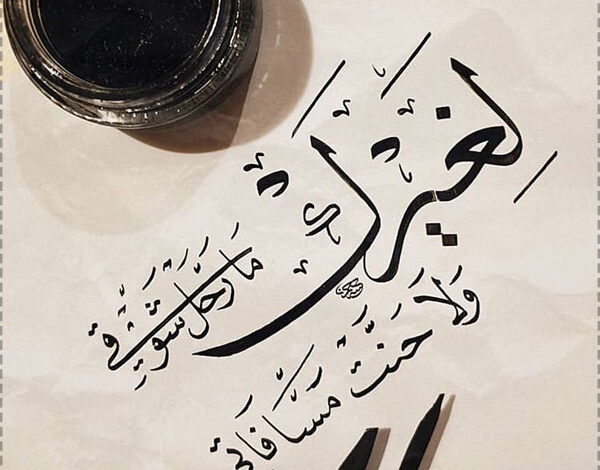 لغيرك
ما رحل شوقي
ولا حنّت مسافاتي